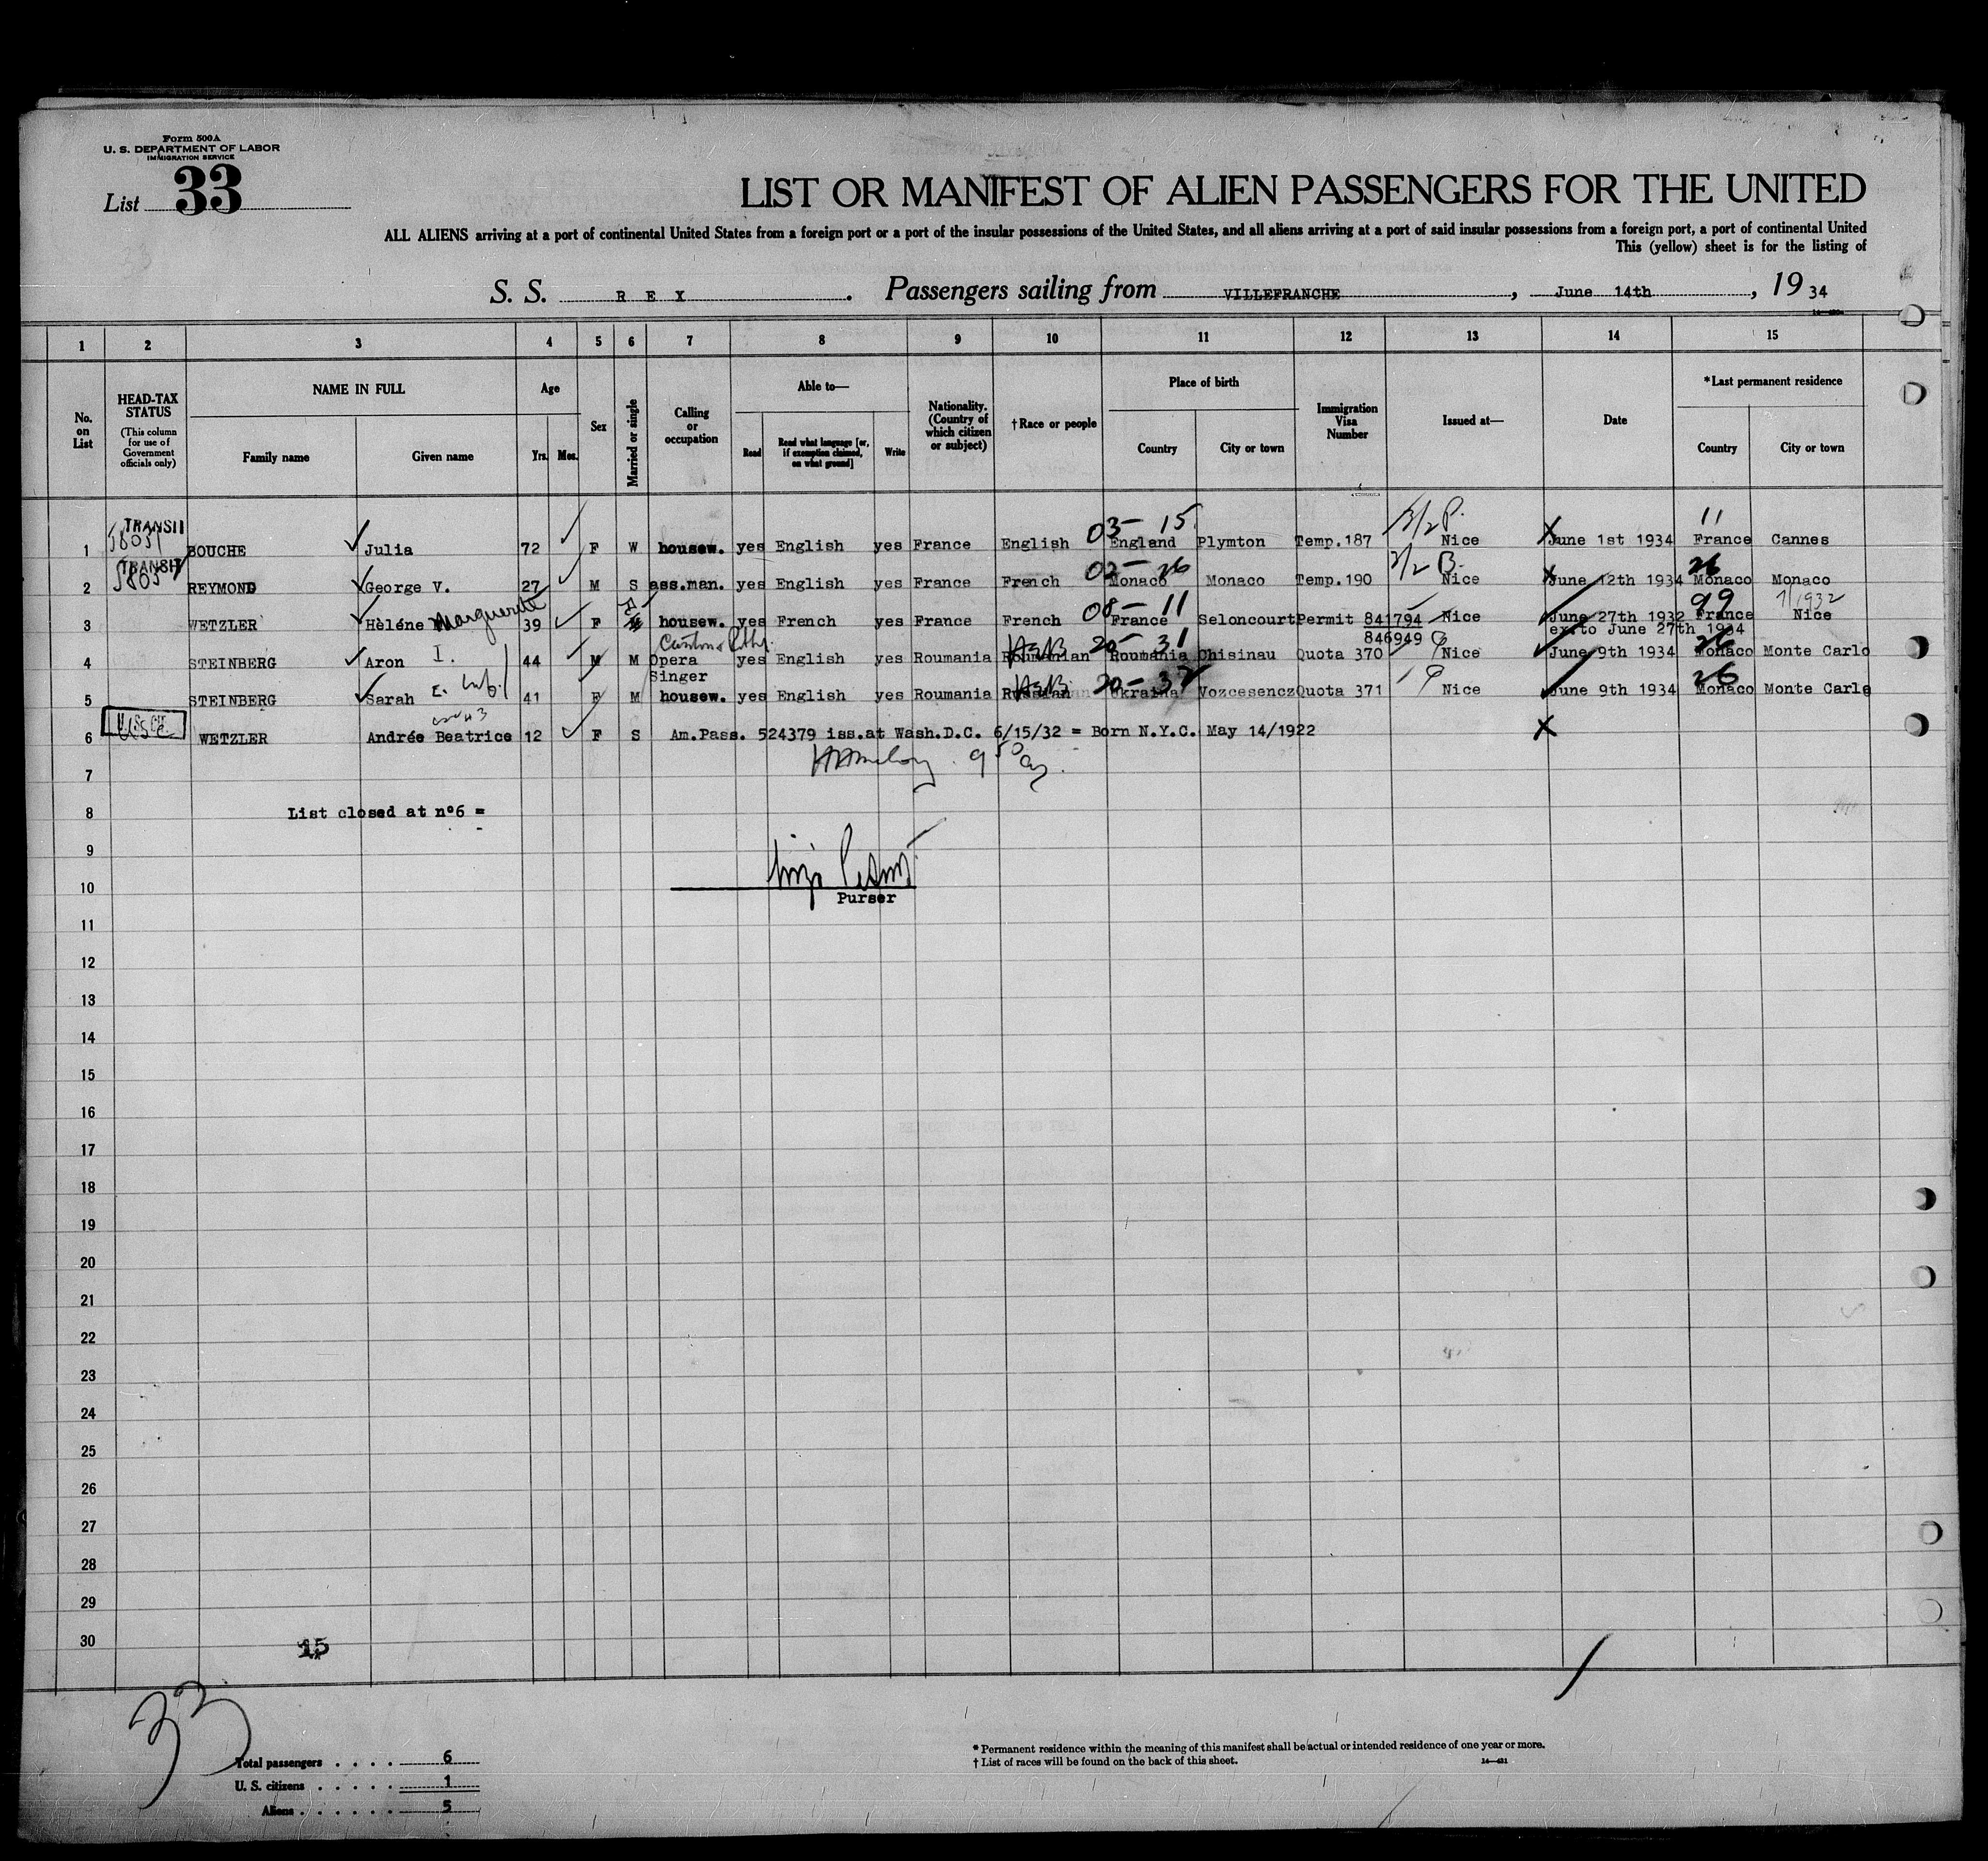 Form 500A
U. S. DEPARTMENT OF LABOR
IMMIGRATION SERVICE
List 33
LIST OR MANIFEST OF ALIEN PASSENGERS FOR THE UNITED
ALL ALIENS arriving at a port of continental United States from a foreign port or a port of the insular possessions of the United States, and all aliens arriving at a port of said insular possessions from a foreign port, a port of continental United
This (yellow) sheet is for the listing of
S. S. R E X . Passengers sailing from VILLEFRANCHE, June 14th, 19 34
1 2 3 4 5 6 7 8 9 10 11 12 13 14 15
No. on List
HEAD-TAX STATUS (This column for use of Government officials only)
NAME IN FULL
Family name
Given name
Age
Yrs. Mos.
Sex
Married or single
Calling or occupation
Able to—
Read
Read what language [or, if exemption claimed, on what ground]
Write
Nationality. (Country of which citizen or subject)
†Race or people
Place of birth
Country
City or town
Immigration Visa Number
Issued at—
Date
*Last permanent residence
Country
City or town
03— 15 11
1 TRANSIT BOUCHE Julia 72 F W housew. yes English yes France English England Plymton Temp.187 Nice June 1st 1934 France Cannes
02— 26 26
2 TRANSIT REYMOND George V. 27 M S ass.man. yes English yes France French Monaco Monaco Temp.190 Nice June 12th 1934 Monaco Monaco
08— 11 99 7/1932
3 WETZLER Hèléne Marguerite 39 F housew. yes French yes France French France Seloncourt Permit 841794 Nice June 27th 1932 France Nice
846949 ex.to June 27th 1934
20— 31 26
4 STEINBERG Aron I. 44 M M Opera Singer yes English yes Roumania Roumanian Roumania Chisinau Quota 370 Nice June 9th 1934 Monaco Monte Carlo
20— 37 26
5 STEINBERG Sarah E. 41 F M housew. yes English yes Roumania Russian Ukraina Vozcesencz Quota 371 Nice June 9th 1934 Monaco Monte Carlo
6 WETZLER Andrée Beatrice 12 F S Am.Pass. 524379 iss.at Wash.D.C. 6/15/32 = Born N.Y.C. May 14/1922
7
8 List closed at nº6 =
9
10
Purser
11
12
13
14
15
16
17
18
19
20
21
22
23
24
25
26
27
28
29
30 15
33
Total passengers . . . . 6
U. S. citizens . . . . . 1
Aliens . . . . . . 5
* Permanent residence within the meaning of this manifest shall be actual or intended residence of one year or more.
† List of races will be found on the back of this sheet.